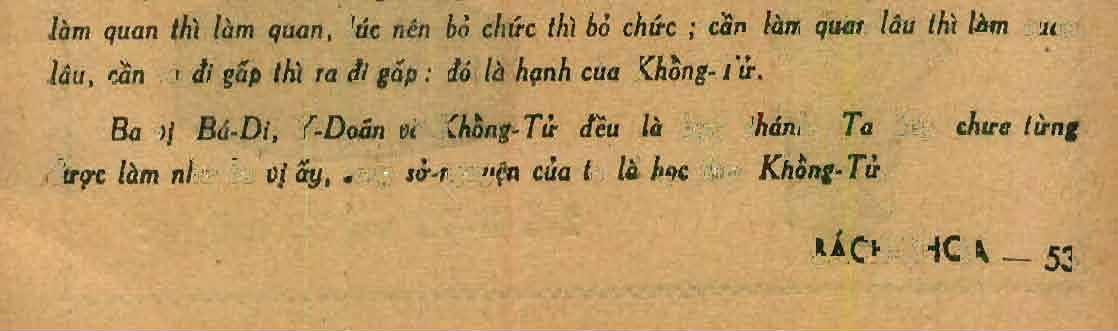 làm quan thì làm quan, lúc nên bỏ chức thì bỏ chức ; cần làm quan lâu thì làm quan
lâu, cần ra đi gấp thì ra đi gấp : đó là hạnh của Khồng-Tử.
Ba vị Bá-Di, Y-Doãn và Khồng-Tử đều là thánh. Ta chưa từng
được làm như ba vị ấy, song sở-nguyện của ta là học Khồng-Tử
BÁCH KHOA — 53